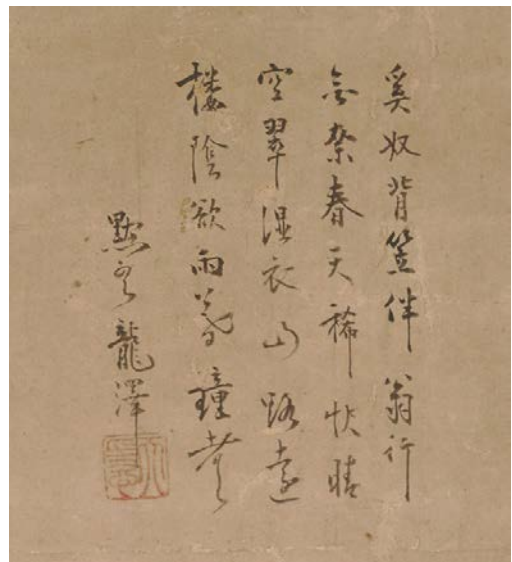 奚奴背笠伴翁行
春天稀快晴
空翠湿衣山路遠
楼陰欲雨暮鐘声
黙雲龍澤